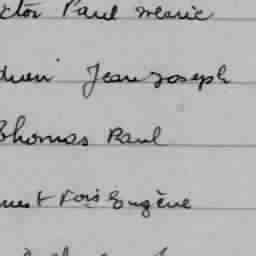 ctor Paul Marie
drien Jean Joseph
Thomas Paul
nest Fois Eugène